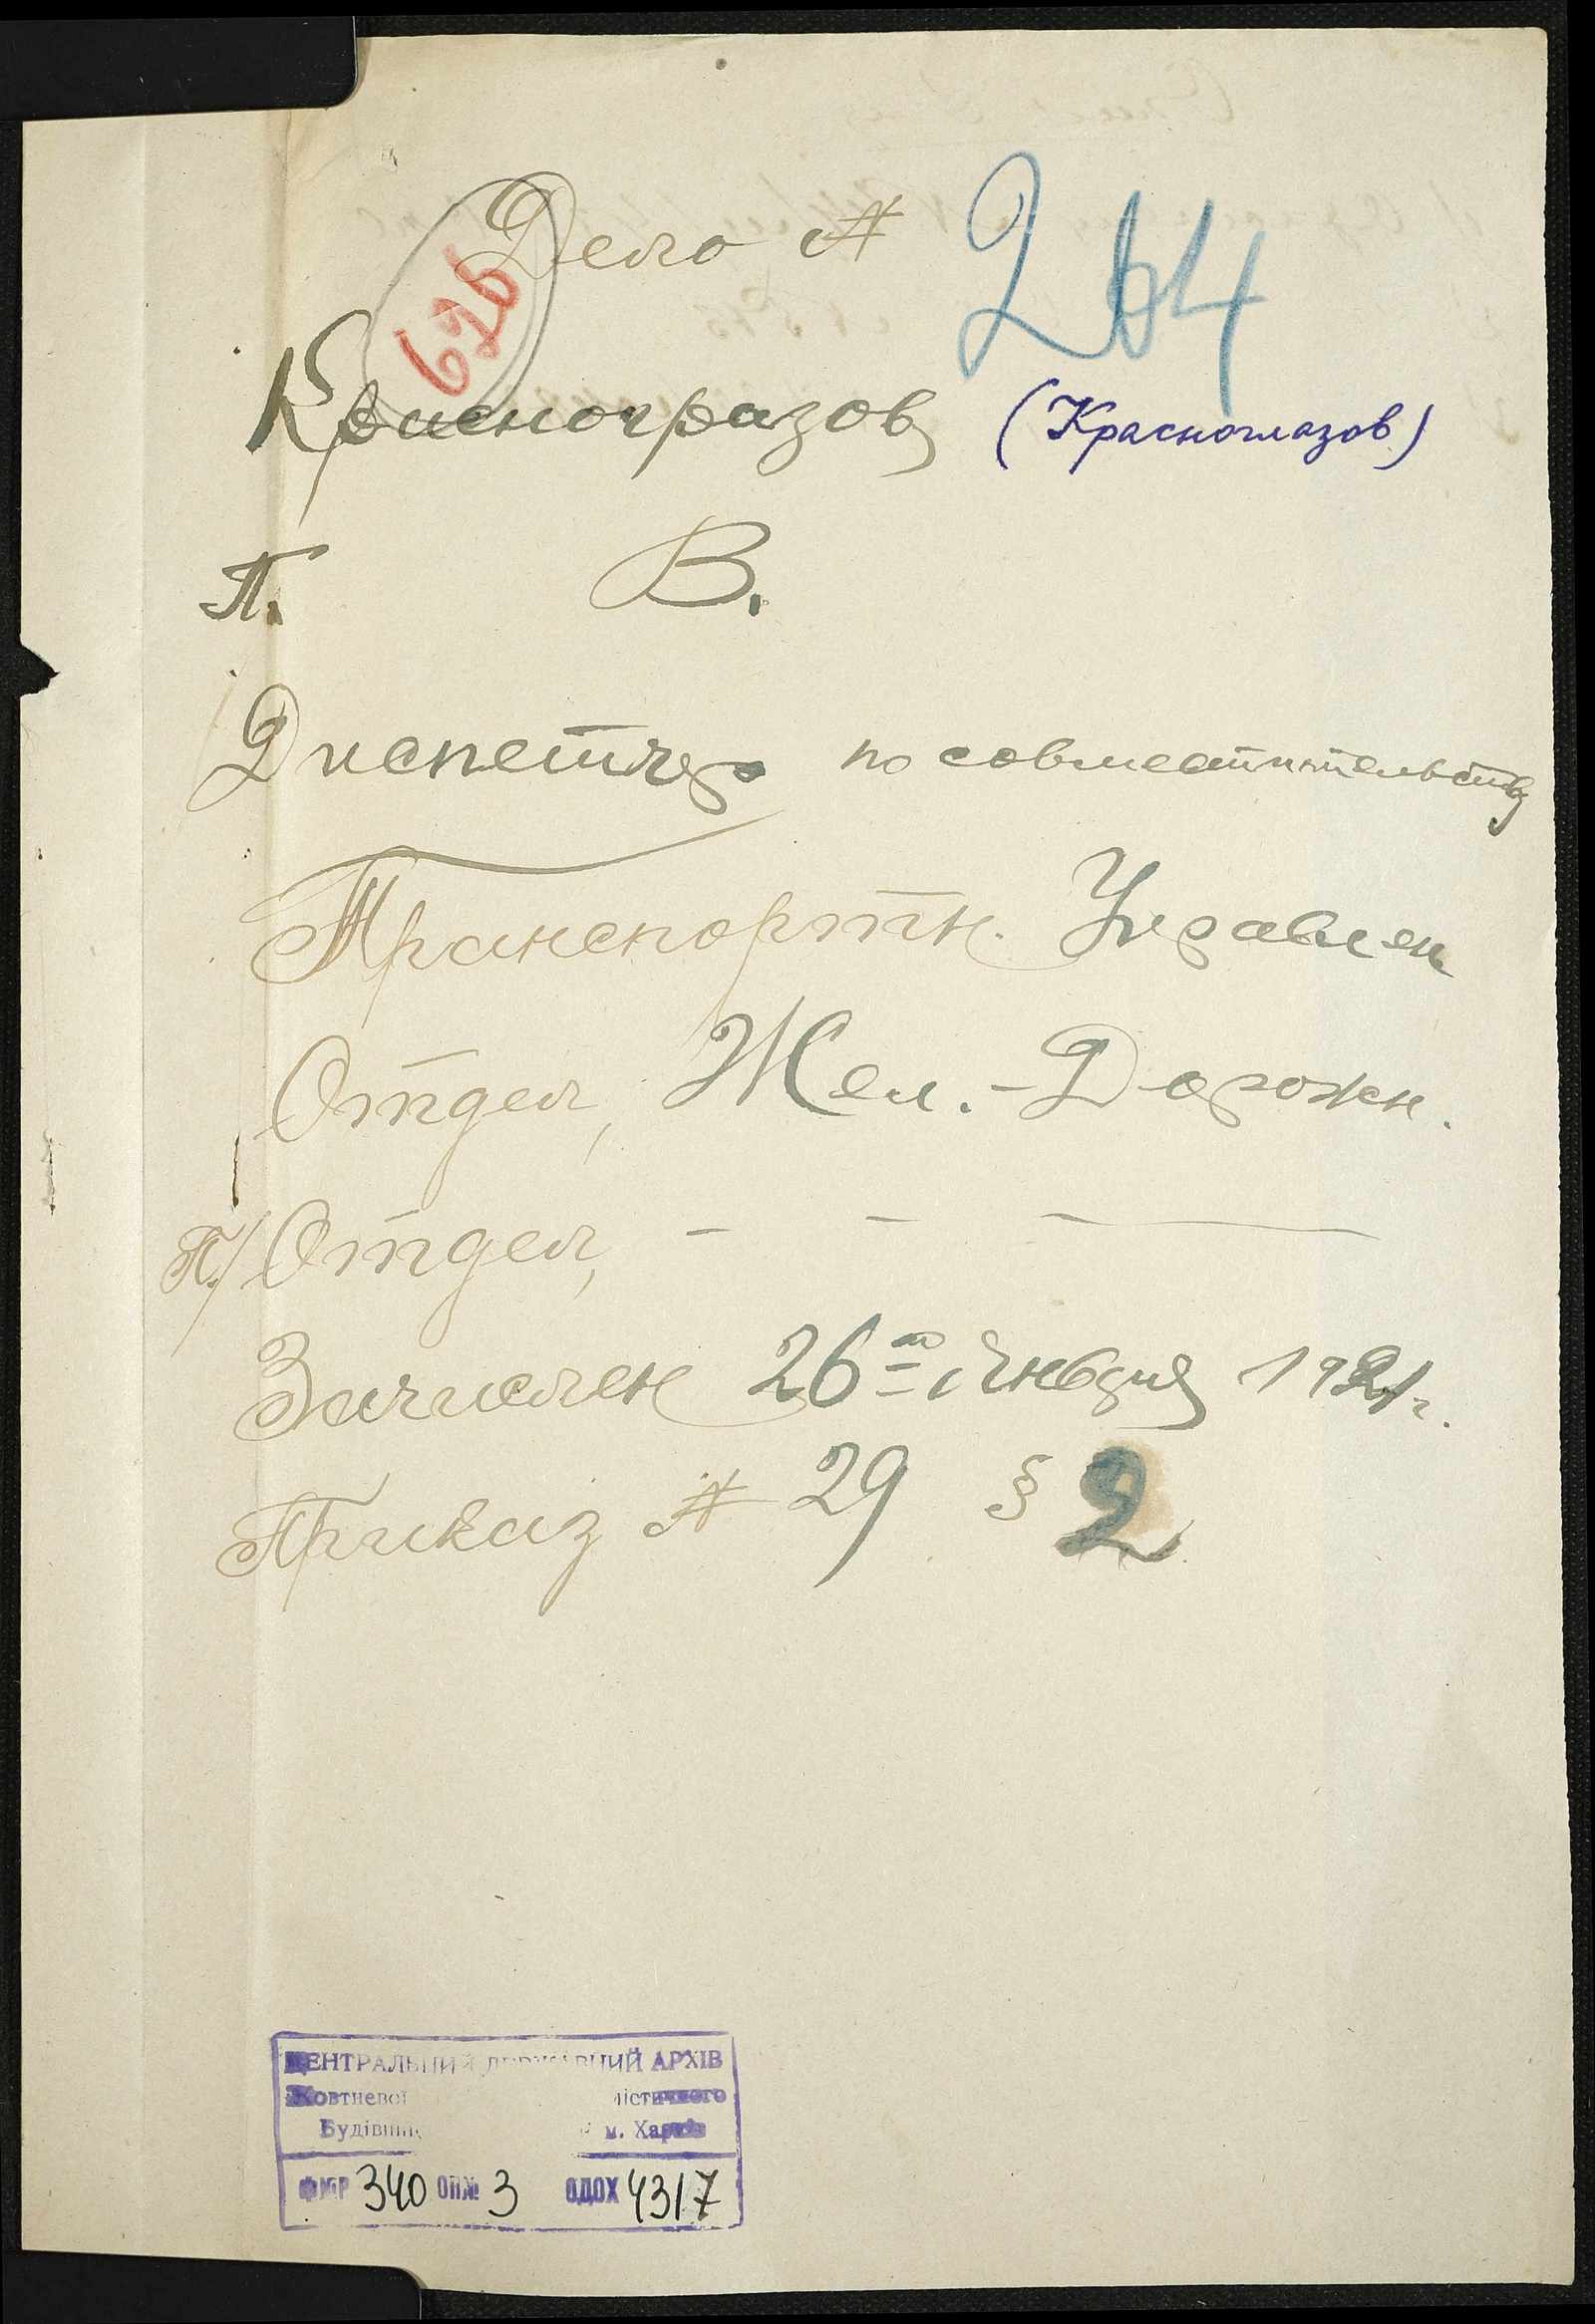 Дело № 264
626
Красногразов (Красноглазов)
П. В.
Диспетчер по совместительству
Транспортн. Управлен
Отдел, Жел.-Дорожн.
П/Отдел, - - —
Зачислен 26го Января 1921 г.
Приказ № 29 § 2
ЦЕНТРАЛЬНИЙ ДЕРЖАВНИЙ АРХІВ
Жовтневої
м. Харків
Ф№Р 340 ОП№ 3 ОДОХ 4317